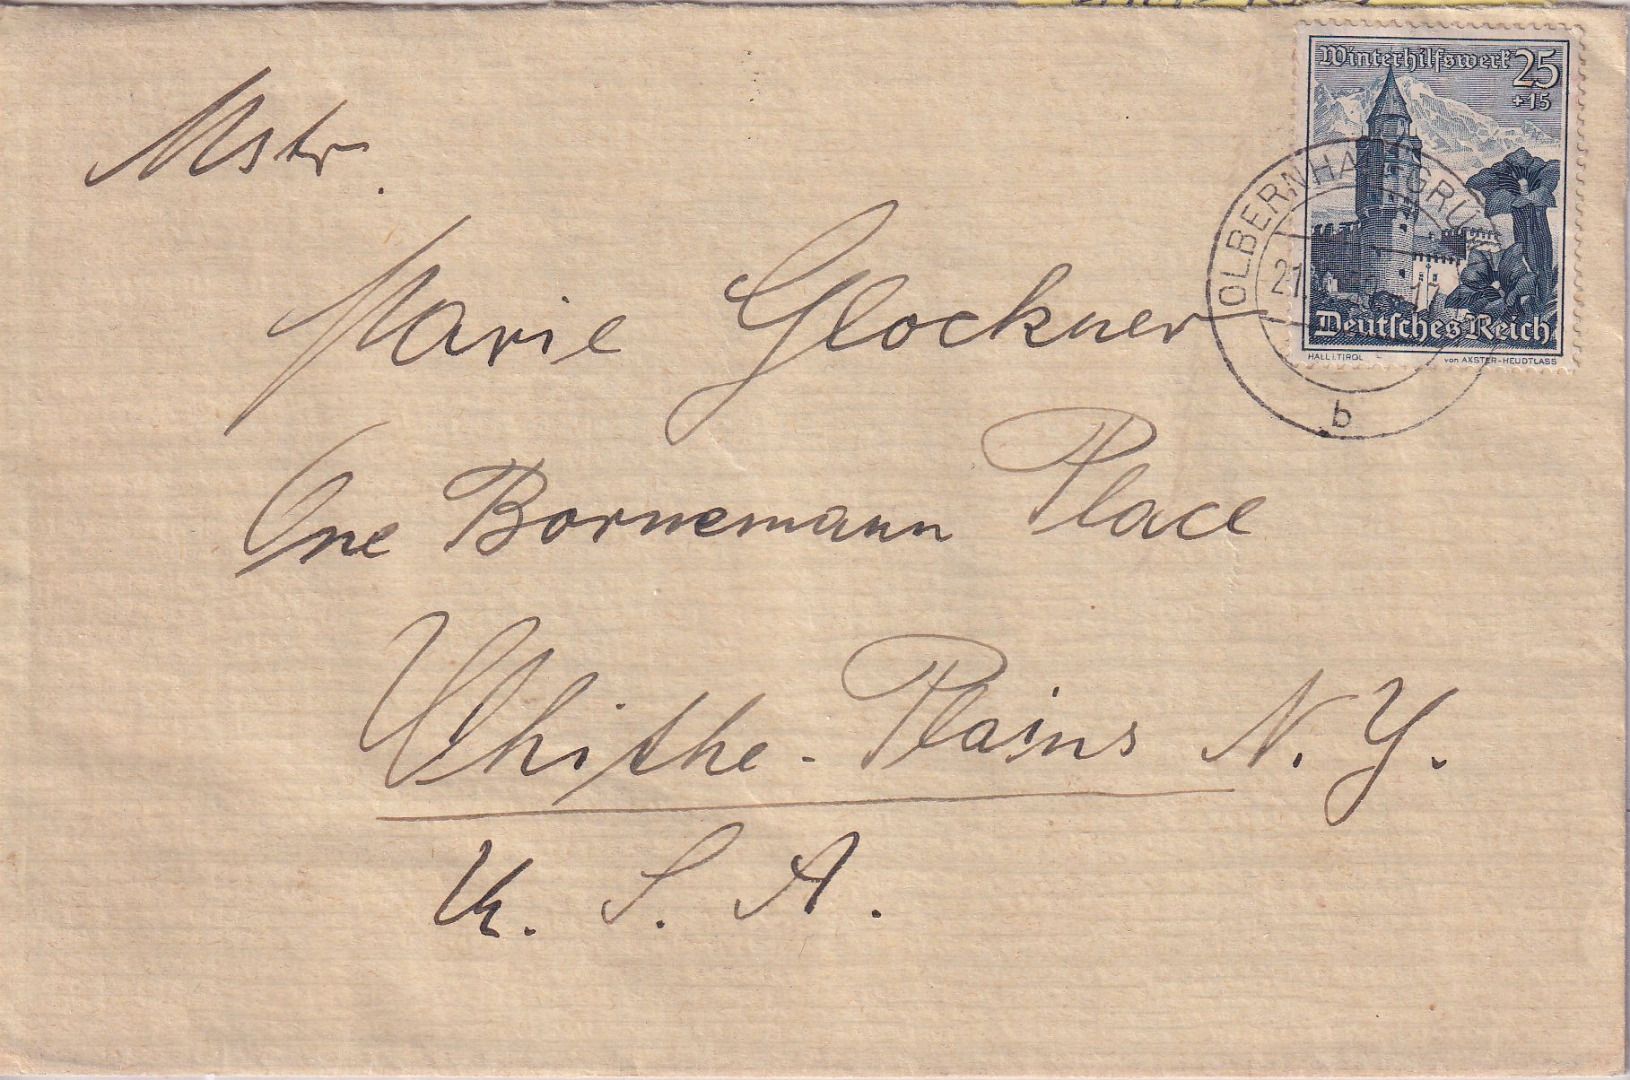 Winterhilfswerk 25
+15
Mstr.
OLBERNHAU-GRÜ
21.
Deutsches Reich
HALL I. TIROL von AXSTER-HEUDTLASS
b
Marie Glockner
One Bornemann Place
Whithe-Plains N.Y.
U. S. A.